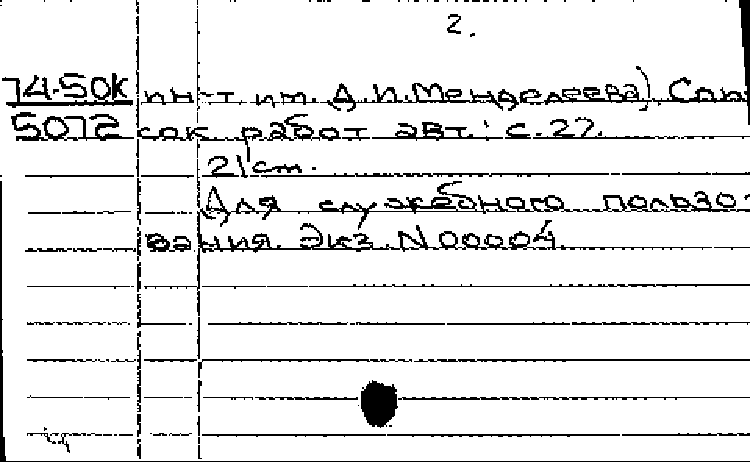 2.
74-50К ин-т им. Д.И.Менделеева). Спи
5072 сок работ авт.: с.27.
21 см.
Для служебного пользо-
вания. Экз. N 00004.